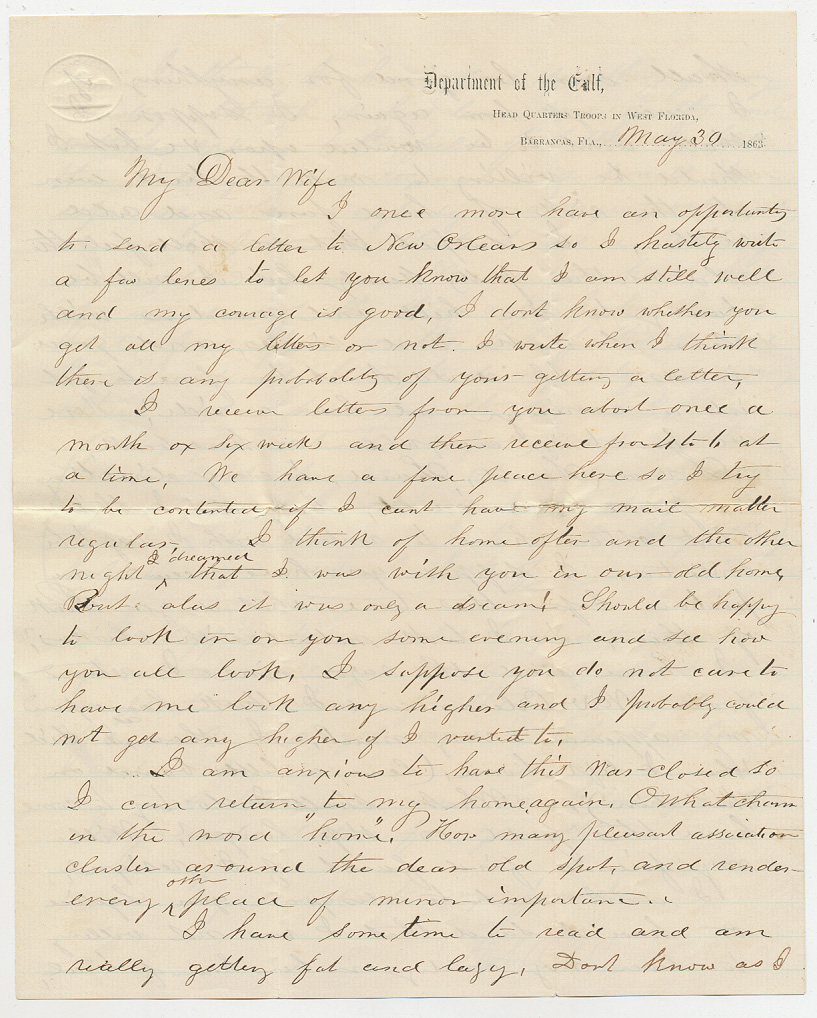 Department of the Gulf,
HEAD QUARTERS TROOPS IN WEST FLORIDA,
BARRANCAS, FLA., May 30 1863
My Dear Wife
I once more have an opportunity
to send a letter to New Orleans so I hastily write
a few lines to let you know that I am still well
and my courage is good, I dont know whether you
get all my letters or not. I write when I think
there is any probability of your getting a letter,
I receive letters from you about once a
month or six weeks and then receive from 4 to 6 at
a time, We have a fine place here so I try
to be contented if I cant have my mail matter
regular, I think of home often and the other
night I dreamed that I was with you in our old home,
But alas it was only a dream! Should be happy
to look in on you some evening and see how
you all look, I suppose you do not care to
have me look any higher and I probably could
not get any higher if I wanted to,
I am anxious to have this war closed so
I can return to my home again. O what charm
in the word "home". How many pleasant association
cluster around the dear old spot, and render
every other place of minor importance..
I have some time to read and am
really getting fat and lazy, Dont know as I